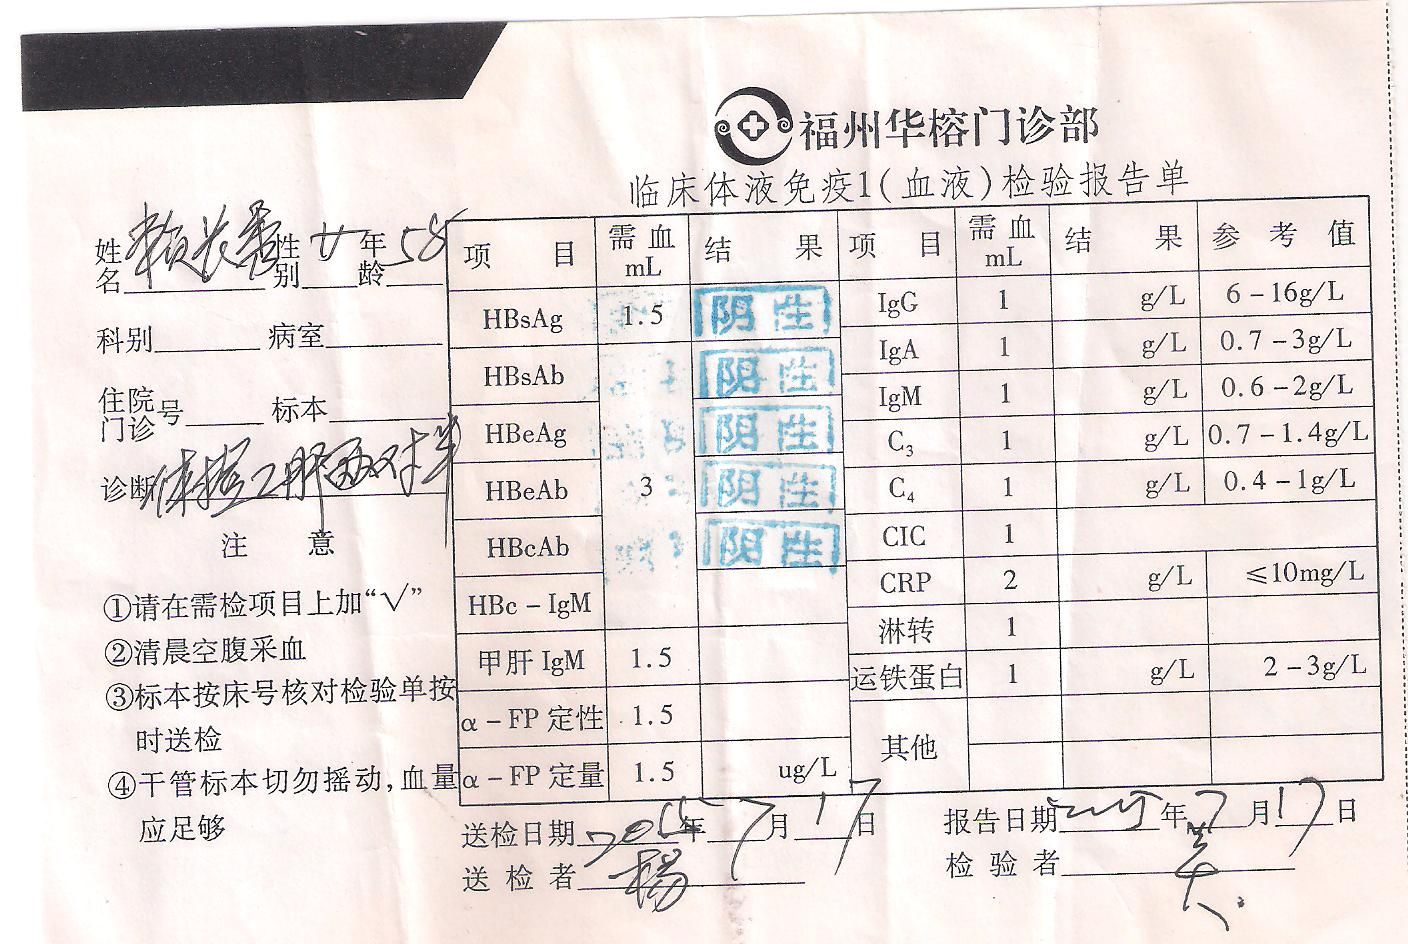 福州华榕门诊部
临床体液免疫1(血液)检验报告单
姓名 赖长香 性别 女 年龄 58
科别 病室
住院门诊号 标本
诊断 体检 乙肝两对半
注 意
①请在需检项目上加“√”
②清晨空腹采血
③标本按床号核对检验单按
时送检
④干管标本切勿摇动,血量
应足够
项 目 需血mL 结 果 项 目 需血mL 结 果 参考值
HBsAg 1.5 阴性 IgG 1 g/L 6-16g/L
HBsAb 阴性 IgA 1 g/L 0.7-3g/L
IgM 1 g/L 0.6-2g/L
HBeAg 阴性 C3 1 g/L 0.7-1.4g/L
HBeAb 3 阴性 C4 1 g/L 0.4-1g/L
HBcAb 阴性 CIC 1
HBc-IgM CRP 2 g/L ≤10mg/L
淋转 1
甲肝IgM 1.5 运铁蛋白 1 g/L 2-3g/L
α-FP定性 1.5 其他
α-FP定量 1.5 ug/L
送检日期 2015年7月17日 报告日期 2015年7月17日
送检者 杨 检验者